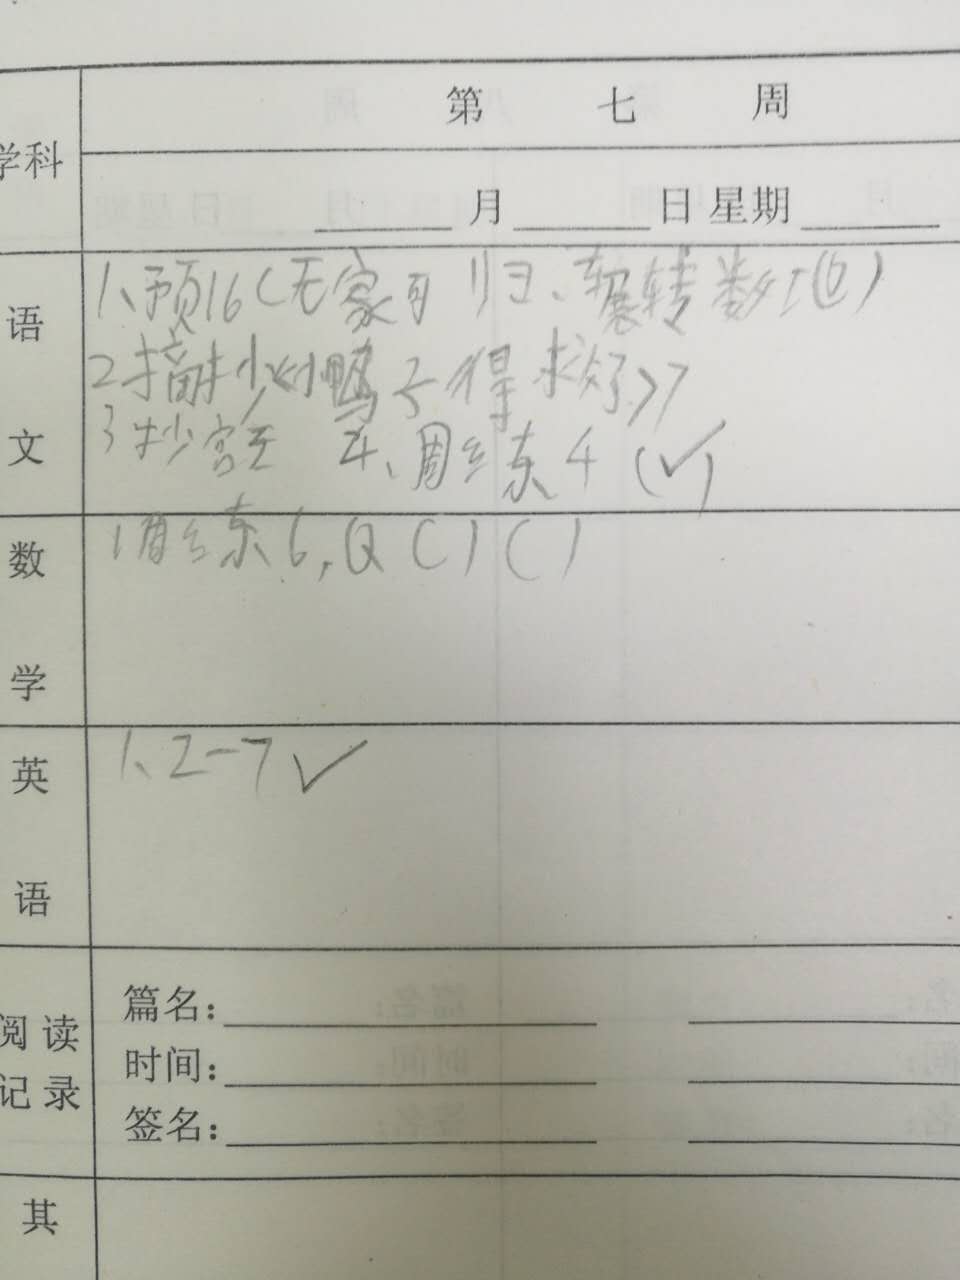 学科
第 七 周
月 日 星期
语文
1、预16(无家可归、辗转数
2 摘抄 小鸭子得救了>7
3 抄 4、周练4 (✓)
数学
1 周练6, ( ) ( )
英语
1、2-7 ✓
阅读记录
篇名:
时间:
签名:
其